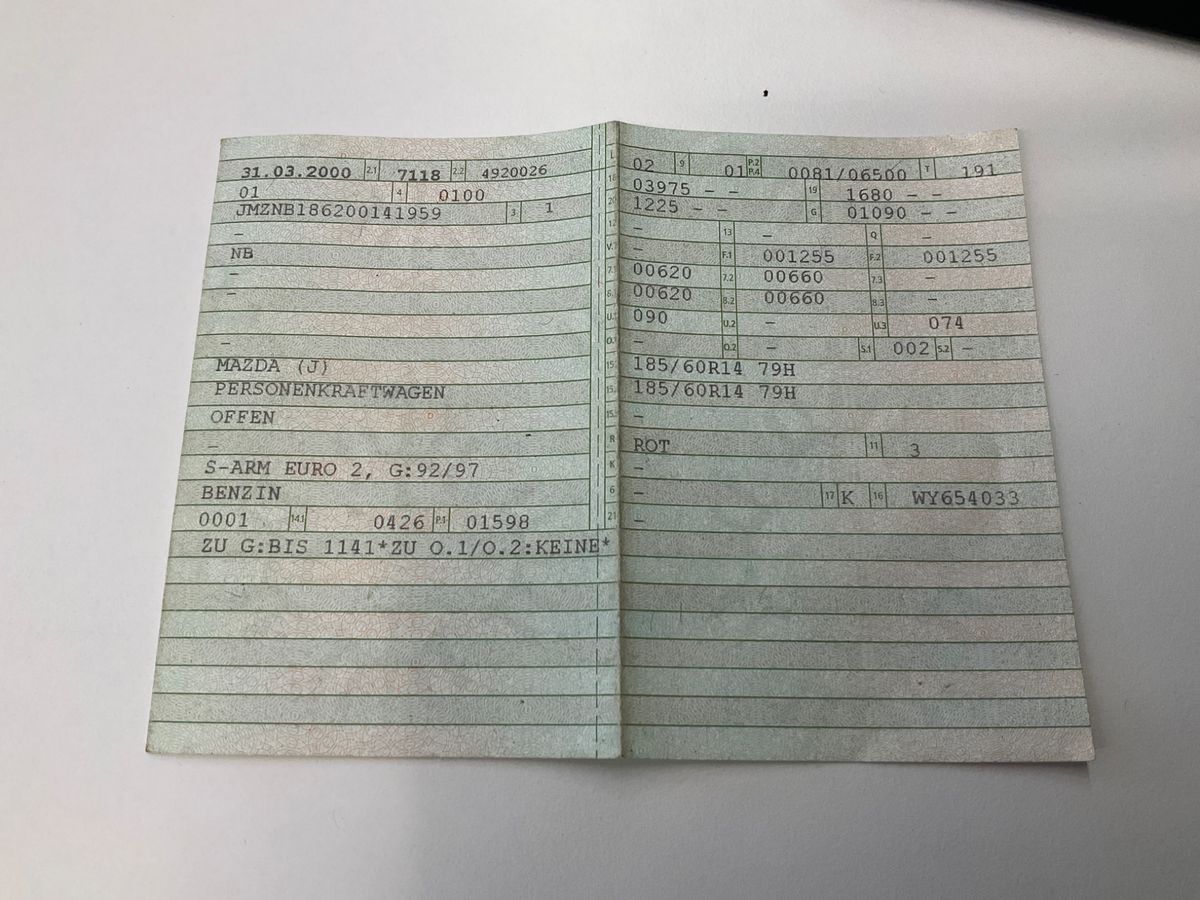 31.03.2000 2.1 7118 2.2 4920026
01 4 0100
JMZNB186200141959 3 1
–
NB
–
–
–
MAZDA (J)
PERSONENKRAFTWAGEN
OFFEN
–
S-ARM EURO 2, G:92/97
BENZIN
0001 14.1 0426 P.1 01598
ZU G:BIS 1141*ZU O.1/O.2:KEINE*
L 02 9 01 P.2 P.4 0081/06500 T 191
18 03975 – – 19 1680 – –
20 1225 – – G 01090 – –
12 – 13 – Q –
V.7 – F.1 001255 F.2 001255
7.1 00620 7.2 00660 7.3 –
8.1 00620 8.2 00660 8.3 –
U.1 090 U.2 – U.3 074
O.1 – O.2 – S.1 002 S.2 –
15.1 185/60R14 79H
15.2 185/60R14 79H
15.3 –
R ROT 11 3
K –
6 – 17 K 16 WY654033
21 –